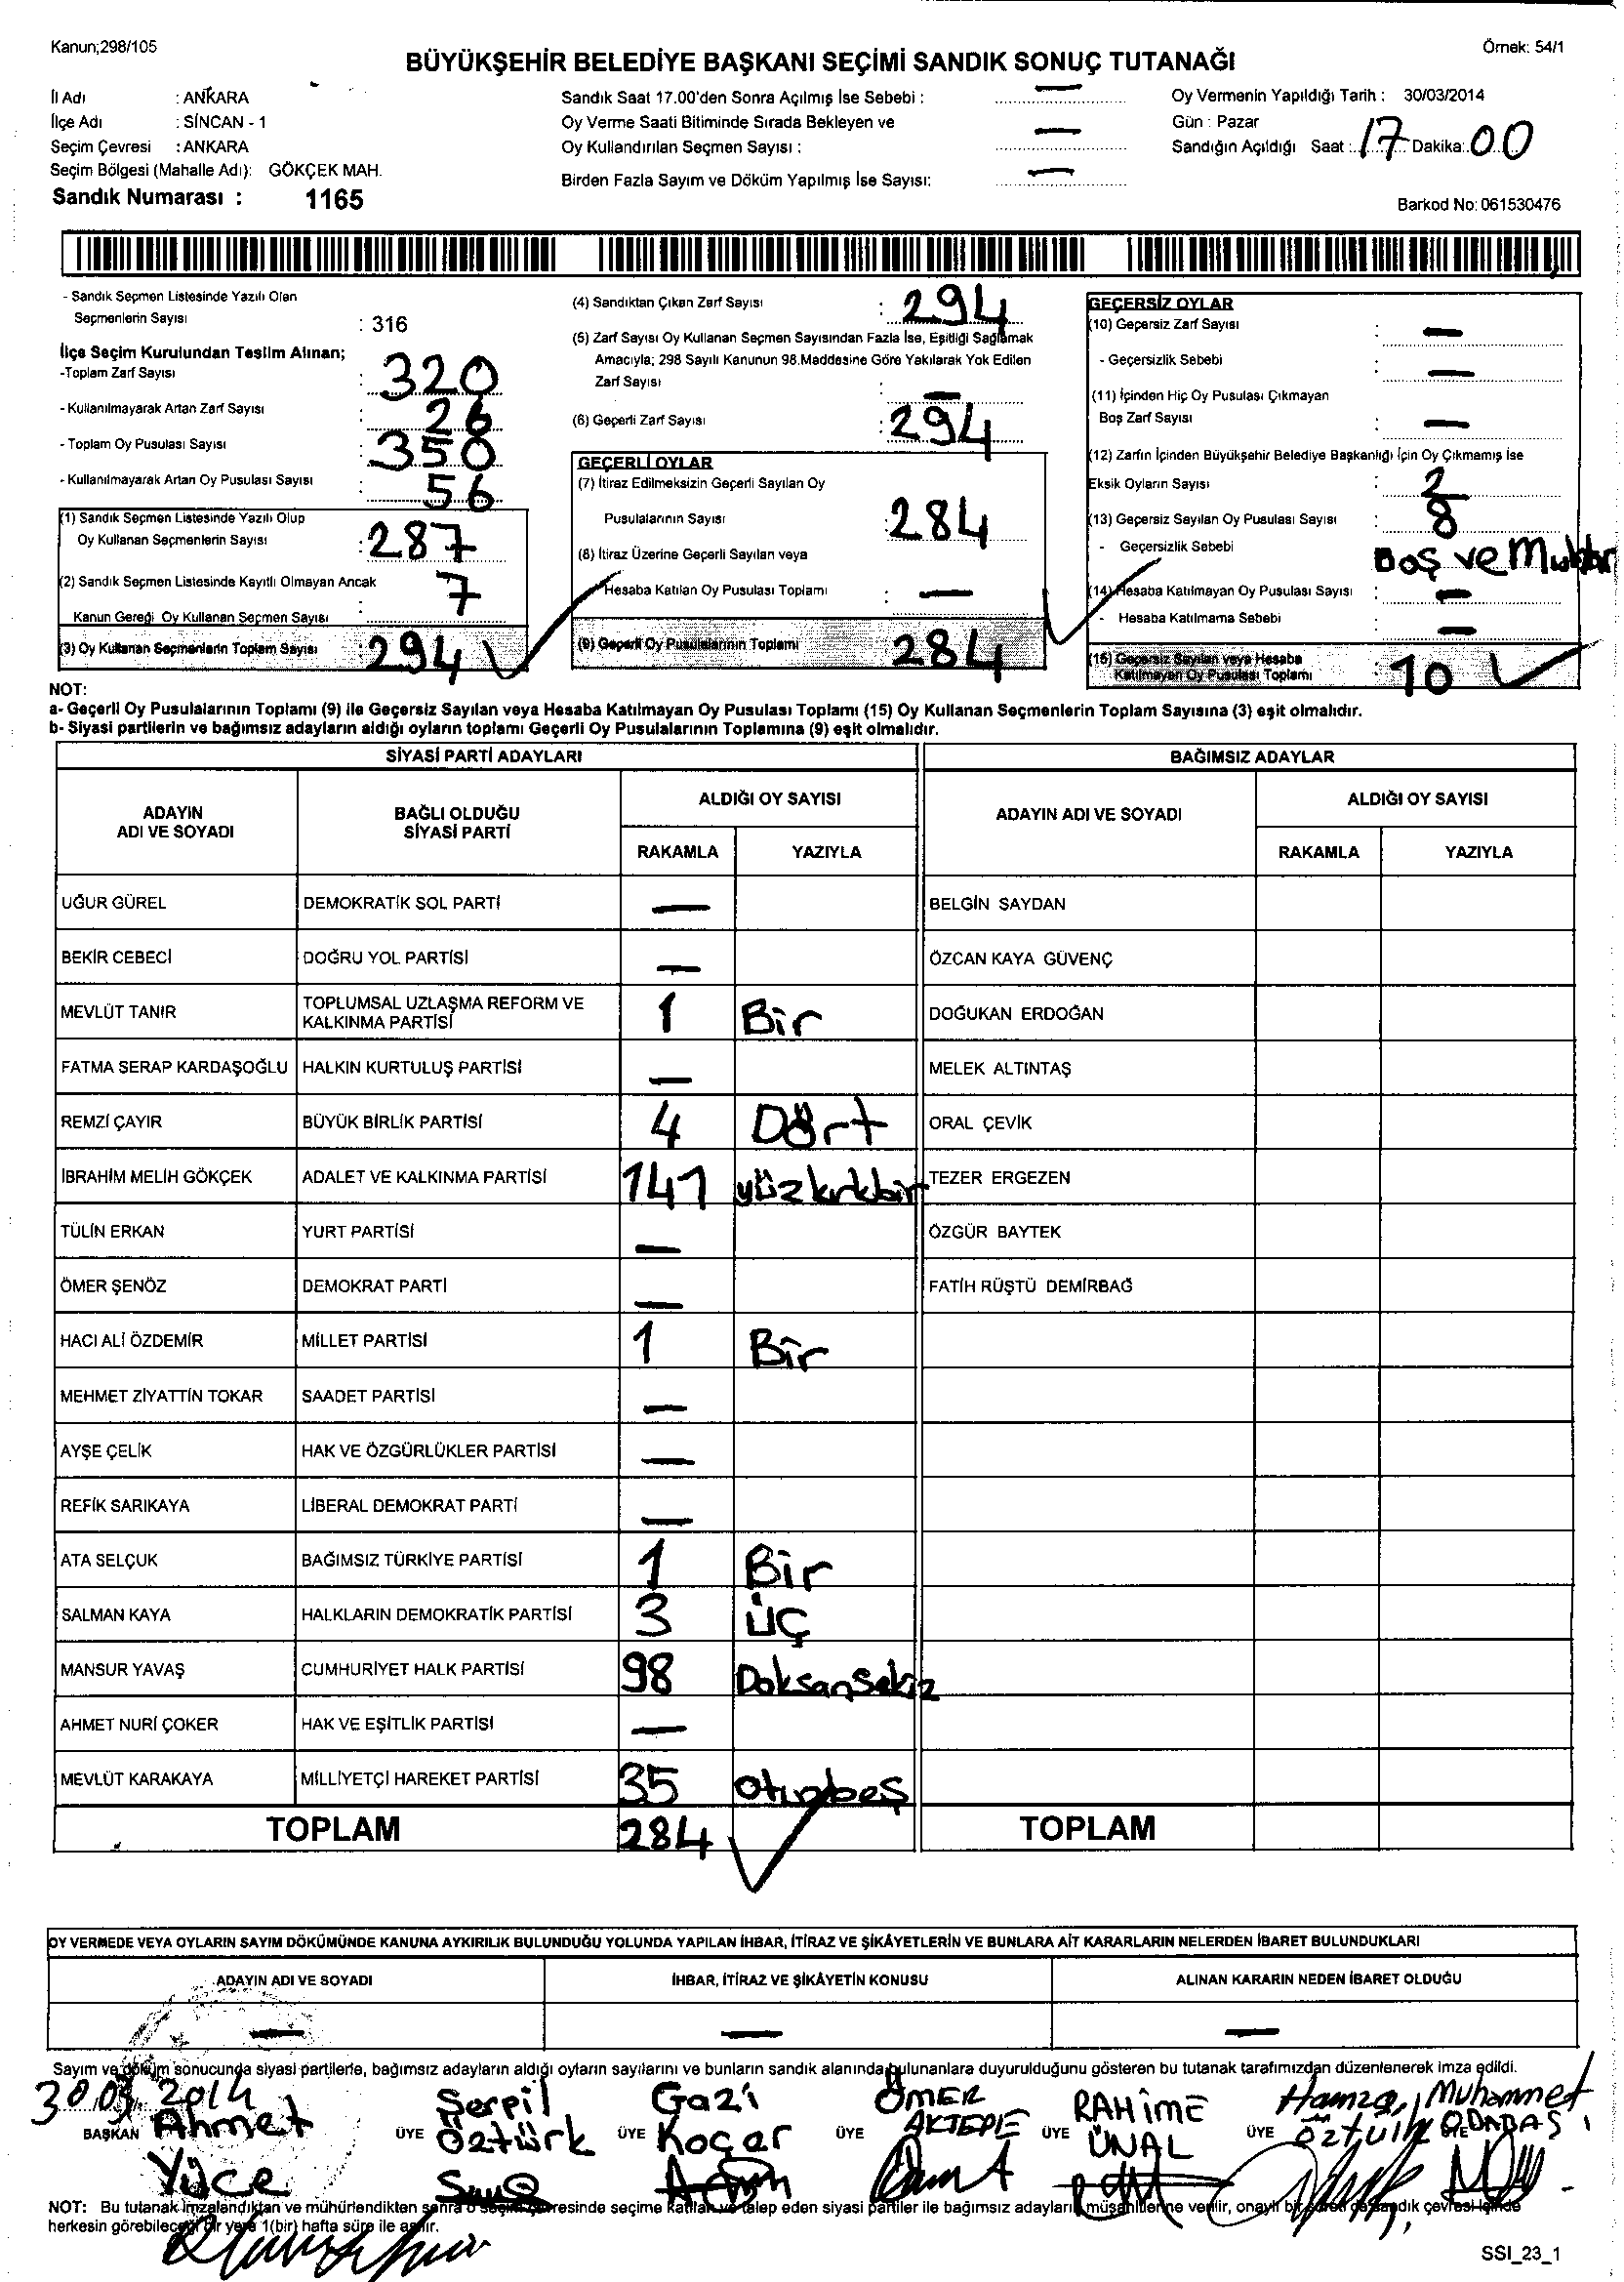 Kanun;298/105
Örnek: 54/1
BÜYÜKŞEHİR BELEDİYE BAŞKANI SEÇİMİ SANDIK SONUÇ TUTANAĞI
İl Adı : ANKARA
İlçe Adı : SİNCAN - 1
Seçim Çevresi : ANKARA
Seçim Bölgesi (Mahalle Adı): GÖKÇEK MAH.
Sandık Numarası : 1165
Sandık Saat 17.00'den Sonra Açılmış İse Sebebi : —
Oy Verme Saati Bitiminde Sırada Bekleyen ve
Oy Kullandırılan Seçmen Sayısı : —
Birden Fazla Sayım ve Döküm Yapılmış İse Sayısı: —
Oy Vermenin Yapıldığı Tarih : 30/03/2014
Gün : Pazar
Sandığın Açıldığı Saat : 17 Dakika: 00
Barkod No: 061530476
- Sandık Seçmen Listesinde Yazılı Olan
Seçmenlerin Sayısı : 316
İlçe Seçim Kurulundan Teslim Alınan;
-Toplam Zarf Sayısı : 320
- Kullanılmayarak Artan Zarf Sayısı : 26
- Toplam Oy Pusulası Sayısı : 350
- Kullanılmayarak Artan Oy Pusulası Sayısı : 56
(1) Sandık Seçmen Listesinde Yazılı Olup
Oy Kullanan Seçmenlerin Sayısı : 287
(2) Sandık Seçmen Listesinde Kayıtlı Olmayan Ancak
Kanun Gereği Oy Kullanan Seçmen Sayısı : 7
(3) Oy Kullanan Seçmenlerin Toplam Sayısı : 294
(4) Sandıktan Çıkan Zarf Sayısı : 294
(5) Zarf Sayısı Oy Kullanan Seçmen Sayısından Fazla İse, Eşitliği Sağlamak
Amacıyla; 298 Sayılı Kanunun 98.Maddesine Göre Yakılarak Yok Edilen
Zarf Sayısı : —
(6) Geçerli Zarf Sayısı : 294
GEÇERLİ OYLAR
(7) İtiraz Edilmeksizin Geçerli Sayılan Oy
Pusulalarının Sayısı : 284
(8) İtiraz Üzerine Geçerli Sayılan veya
Hesaba Katılan Oy Pusulası Toplamı : —
(9) Geçerli Oy Pusulalarının Toplamı 284
GEÇERSİZ OYLAR
(10) Geçersiz Zarf Sayısı : —
- Geçersizlik Sebebi : —
(11) İçinden Hiç Oy Pusulası Çıkmayan
Boş Zarf Sayısı : —
(12) Zarfın İçinden Büyükşehir Belediye Başkanlığı İçin Oy Çıkmamış İse
Eksik Oyların Sayısı : 2
(13) Geçersiz Sayılan Oy Pusulası Sayısı : 8
- Geçersizlik Sebebi Boş ve
(14) Hesaba Katılmayan Oy Pusulası Sayısı : —
- Hesaba Katılmama Sebebi : —
(15) Geçersiz Sayılan veya Hesaba
Katılmayan Oy Pusulası Toplamı : 10
NOT:
a- Geçerli Oy Pusulalarının Toplamı (9) ile Geçersiz Sayılan veya Hesaba Katılmayan Oy Pusulası Toplamı (15) Oy Kullanan Seçmenlerin Toplam Sayısına (3) eşit olmalıdır.
b- Siyasi partilerin ve bağımsız adayların aldığı oyların toplamı Geçerli Oy Pusulalarının Toplamına (9) eşit olmalıdır.
SİYASİ PARTİ ADAYLARI
BAĞIMSIZ ADAYLAR
ADAYIN ADI VE SOYADI
BAĞLI OLDUĞU SİYASİ PARTİ
ALDIĞI OY SAYISI
RAKAMLA YAZIYLA
ADAYIN ADI VE SOYADI
ALDIĞI OY SAYISI
RAKAMLA YAZIYLA
UĞUR GÜREL DEMOKRATİK SOL PARTİ — BELGİN SAYDAN
BEKİR CEBECİ DOĞRU YOL PARTİSİ — ÖZCAN KAYA GÜVENÇ
MEVLÜT TANIR TOPLUMSAL UZLAŞMA REFORM VE KALKINMA PARTİSİ 1 Bir DOĞUKAN ERDOĞAN
FATMA SERAP KARDAŞOĞLU HALKIN KURTULUŞ PARTİSİ — MELEK ALTINTAŞ
REMZİ ÇAYIR BÜYÜK BİRLİK PARTİSİ 4 Dört ORAL ÇEVİK
İBRAHİM MELİH GÖKÇEK ADALET VE KALKINMA PARTİSİ 141 yüzkırkbir TEZER ERGEZEN
TÜLİN ERKAN YURT PARTİSİ — ÖZGÜR BAYTEK
ÖMER ŞENÖZ DEMOKRAT PARTİ — FATİH RÜŞTÜ DEMİRBAĞ
HACI ALİ ÖZDEMİR MİLLET PARTİSİ 1 Bir
MEHMET ZİYATTİN TOKAR SAADET PARTİSİ —
AYŞE ÇELİK HAK VE ÖZGÜRLÜKLER PARTİSİ —
REFİK SARIKAYA LİBERAL DEMOKRAT PARTİ —
ATA SELÇUK BAĞIMSIZ TÜRKİYE PARTİSİ 1 Bir
SALMAN KAYA HALKLARIN DEMOKRATİK PARTİSİ 3 üç
MANSUR YAVAŞ CUMHURİYET HALK PARTİSİ 98 Doksansekiz
AHMET NURİ ÇOKER HAK VE EŞİTLİK PARTİSİ —
MEVLÜT KARAKAYA MİLLİYETÇİ HAREKET PARTİSİ 35 otuzbeş
TOPLAM 284 TOPLAM
OY VERMEDE VEYA OYLARIN SAYIM DÖKÜMÜNDE KANUNA AYKIRILIK BULUNDUĞU YOLUNDA YAPILAN İHBAR, İTİRAZ VE ŞİKÂYETLERİN VE BUNLARA AİT KARARLARIN NELERDEN İBARET BULUNDUKLARI
ADAYIN ADI VE SOYADI İHBAR, İTİRAZ VE ŞİKÂYETİN KONUSU ALINAN KARARIN NEDEN İBARET OLDUĞU
— — —
Sayım ve döküm sonucunda siyasi partilerle, bağımsız adayların aldığı oyların sayılarını ve bunların sandık alanında bulunanlara duyurulduğunu gösteren bu tutanak tarafımızdan düzenlenerek imza edildi.
30.03.2014
BAŞKAN Ahmet Yüce
ÜYE Serpil Öztürk
ÜYE Gazi Koçar
ÜYE ÖMER AKTEPE
ÜYE RAHİME ÜNAL
ÜYE Hamza Öztulk
ÜYE Muhammet ODABAŞI
NOT: Bu tutanak imzalandıktan ve mühürlendikten sonra o seçim çevresinde seçime katılan ve talep eden siyasi partiler ile bağımsız adayların müşahitlerine verilir, onaylı bir sureti de sandık çevresi içinde
herkesin görebileceği bir yere 1(bir) hafta süre ile asılır.
SSI_23_1